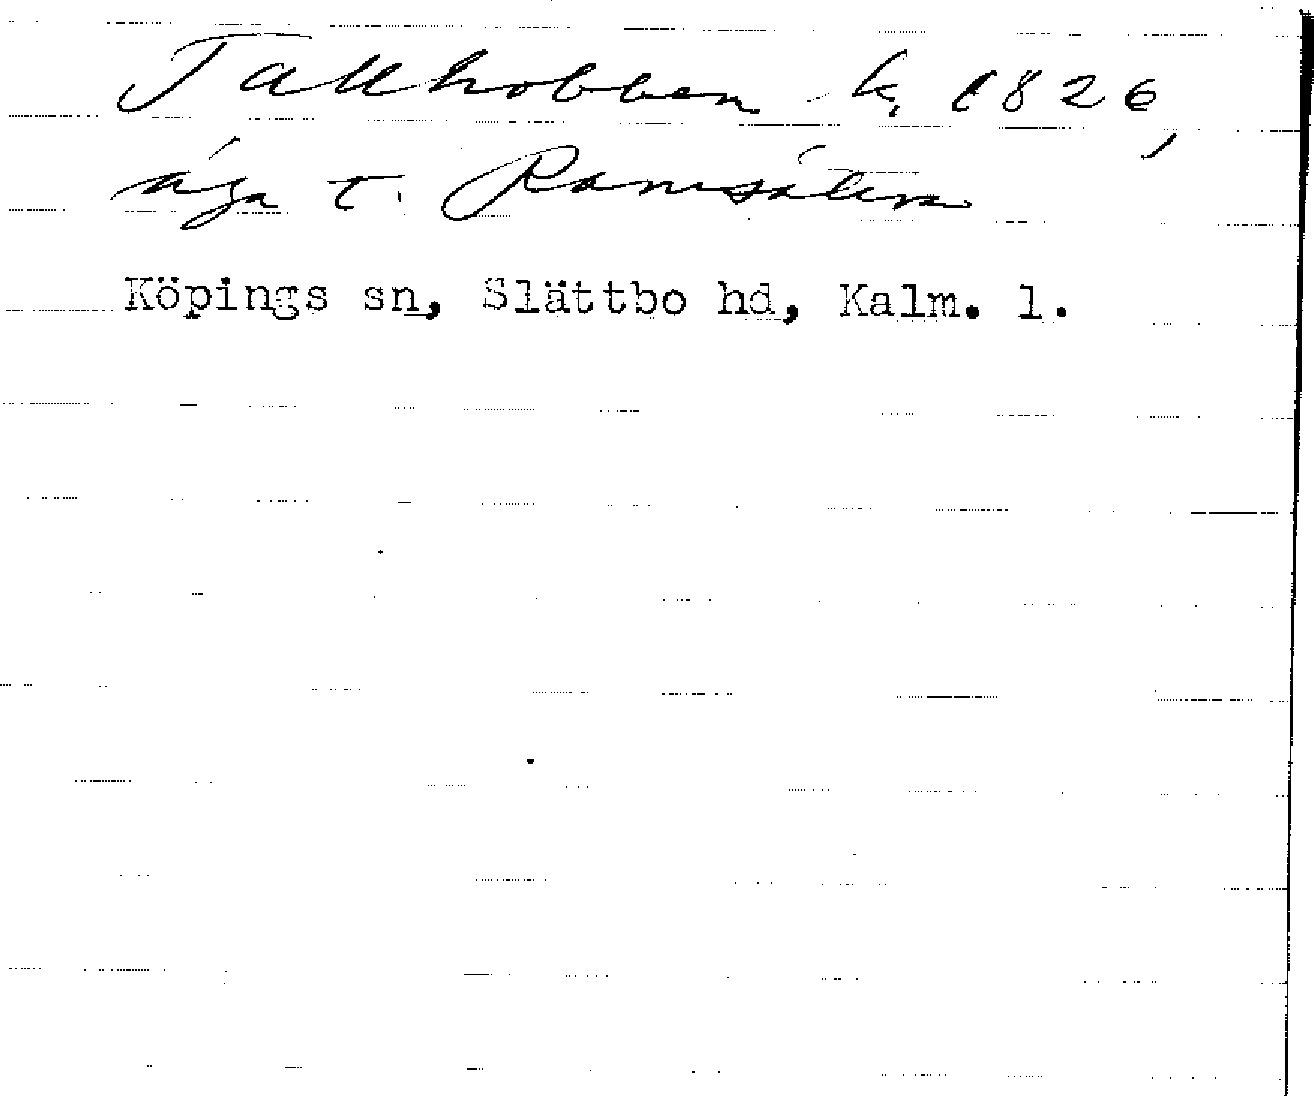 Tallhobben k. 1826,
äga t. Ramsälen
Köpings sn, Slättbo hd, Kalm. l.